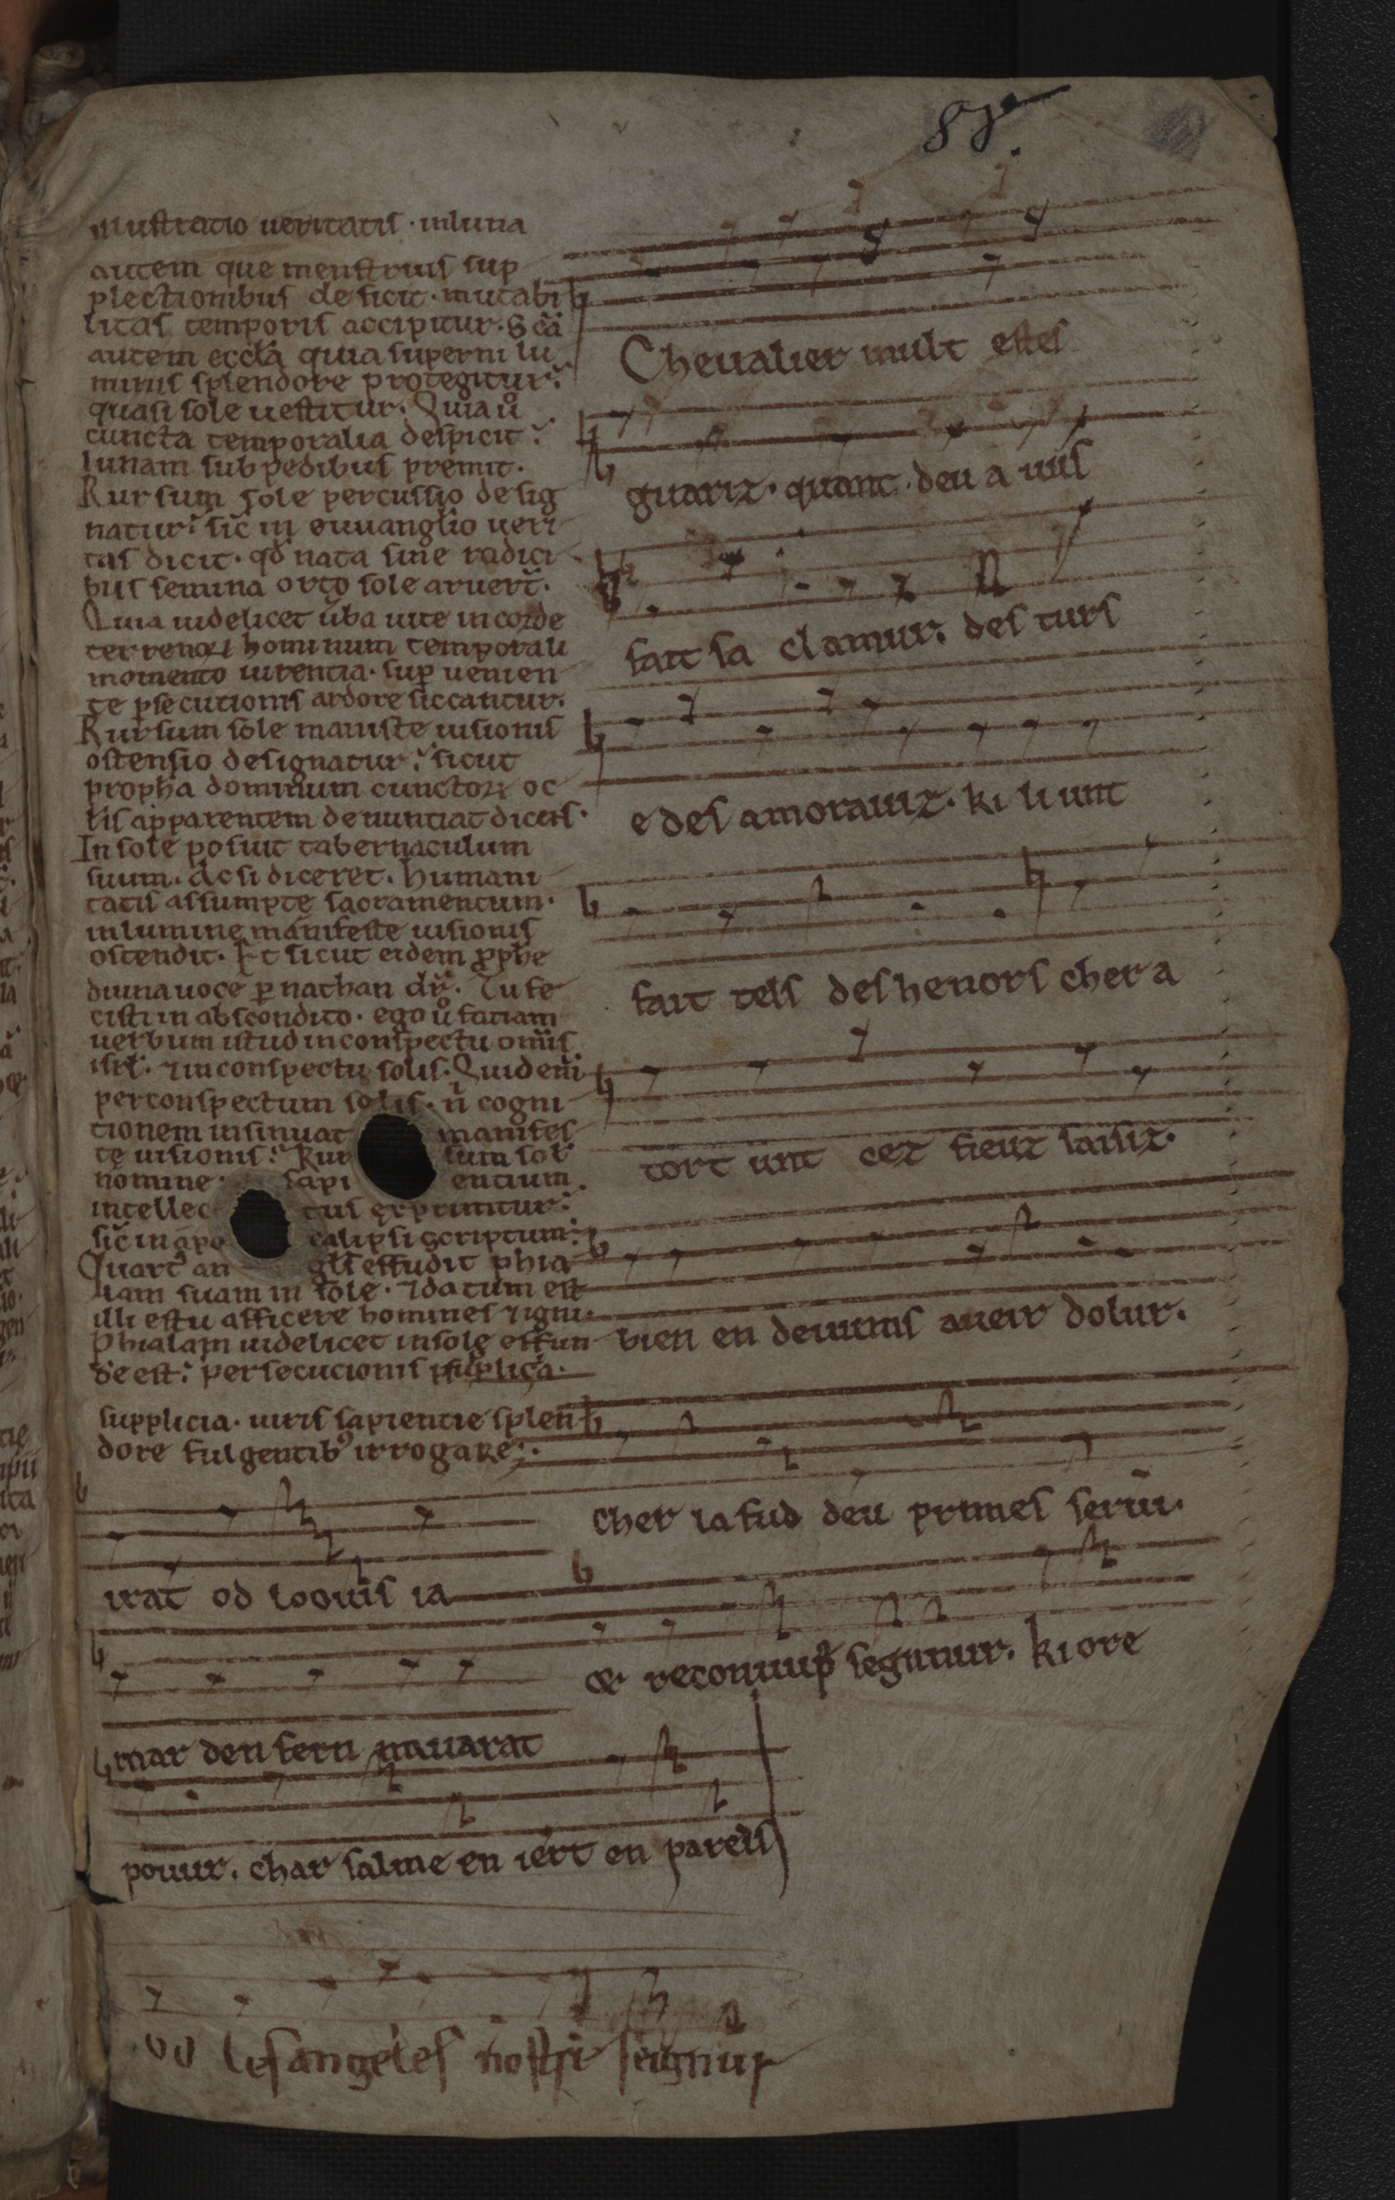 88
illustratio ueritatis · in luna
autem que menstruis sup
plectionibus deficit · mutabi
litas temporis accipitur · S cā
autem eccła quia superni lu
minis splendore protegitur ·̃
quasi sole uestitur · Quia ů
cuncta temporalia despicit ·̃
lunam sub pedibus premit ·
Rursum sole percussio desig
natur ·̃ sic̃ in euuanglio ueri
tas dicit · qđ nata sine radici
bus semina orto sole aruert̃ ·
Quia uidelicet ũba uite in corde
terrenoꝝ hominum temporali
momento uirentia · sup uenien
te ꝑsecutionis ardore siccantur ·
Rursum sole manifeste uisionis
ostensio designatur ·̃ sicut
propħa dominum cunctoꝝ oc
lis apparentem denuntiat dicens ·
In sole posuit tabernaculum
suum · Ac si diceret · humani
tatis assumpte sacramentum ·
in lumine manifeste uisionis
ostendit · Et sicut eidem ꝓphe
diuina uoce ꝑ nathan dr̃ · Tu fe
cisti in abscondito · ego ů faciam
uerbum istud in conspectu omĩs
isrł · ⁊ in conspectu solis · Quid enĩ
per conspectum solis · ñ cogni
tionem insinuat manifes
te uisionis ·̃ Rursum sol
nomine · sapientium
intellectus exprimitur ·̃
sic̃ in apocalipsi scriptum ·̃
Quart᾽ angłs effudit phia
lam suam in sole · ⁊ datum est
illi estu afficere homines ⁊ igni ·
Phialam uidelicet in sole effun
de est ·̃ persecucionis suplicia ·
supplicia · uiris sapientie splen
dore fulgentib᾽ irrogare ·
Cheualier mult estes
guariz · quant deu a uus
fait sa clamur · des turs
e des amorauiz · ki li unt
fait tels deshenors cher a
tort unt cez fieuz saisiz ·
bien en deuums aueir dolur ·
cher la fud deu primes serui ·
& reconuup̃ segnuur · ki ore
irat od loouis ia
mar den fern nauarat
pouur · char salme en iert en pareis
od les angeles nostre seignur